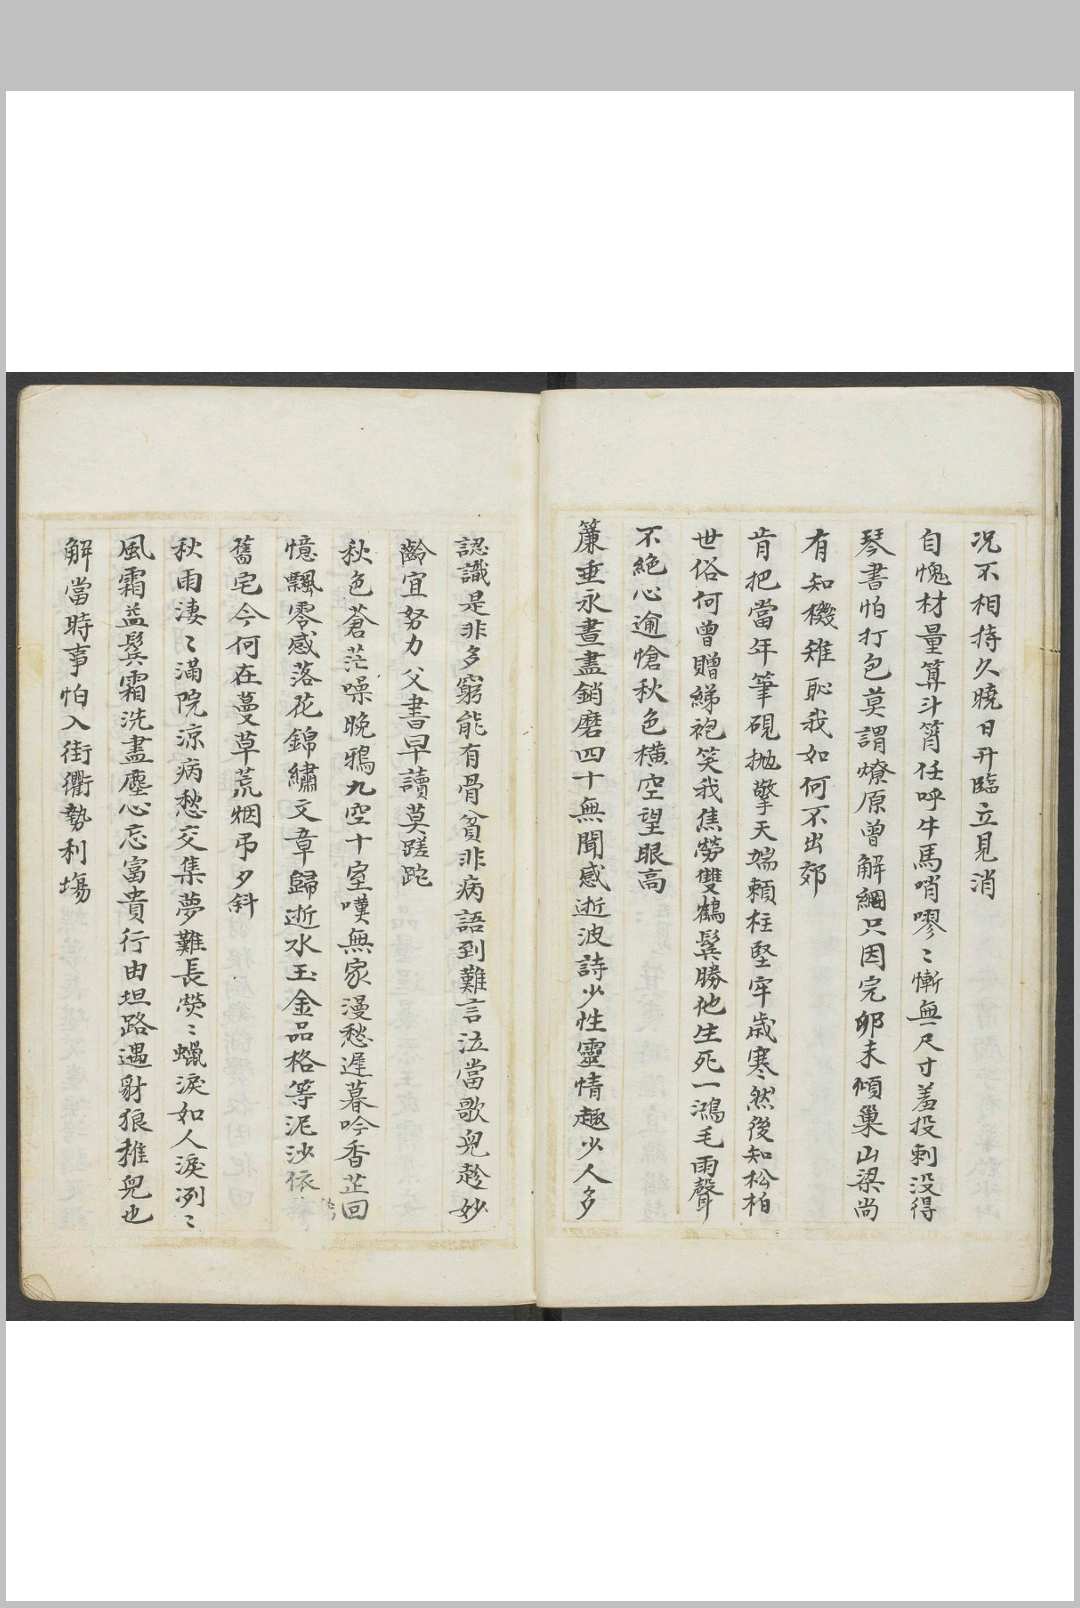 况不相持久曉日升臨立見消
自愧材量算斗筲任呼牛馬哨嘐〻慚無尺寸羞投刺没得
琴書怕打包莫謂燎原曾解網只因完卵未傾巢山梁尚
有知機雉恥我如何不出郊
肯把當年筆硯抛擎天端賴柱堅牢歲寒然後知松柏
世俗何曾贈綈袍笑我焦勞雙鶴鬂勝他生死一鴻毛雨聲
不絕心逾愴秋色橫空望眼高
簾垂永晝盡銷磨四十無聞感逝波詩少性靈情趣少人多
認識是非多窮能有骨貧非病語到難言泣當歌兒趁妙
齡宜努力父書早讀莫蹉跎
秋色蒼茫噪晚鴉九空十室嘆無家漫愁遲暮吟香芷回
憶飄零感落花錦繡文章歸逝水玉金品格等泥沙依
舊宅今何在蔓草荒烟弔夕斜
秋雨淒〻滿院涼病愁交集夢難長熒〻蠟淚如人淚冽〻
風霜益鬂霜洗盡塵心忘富貴行由坦路遇豺狼稚兒也
解當時事怕入街衢勢利場